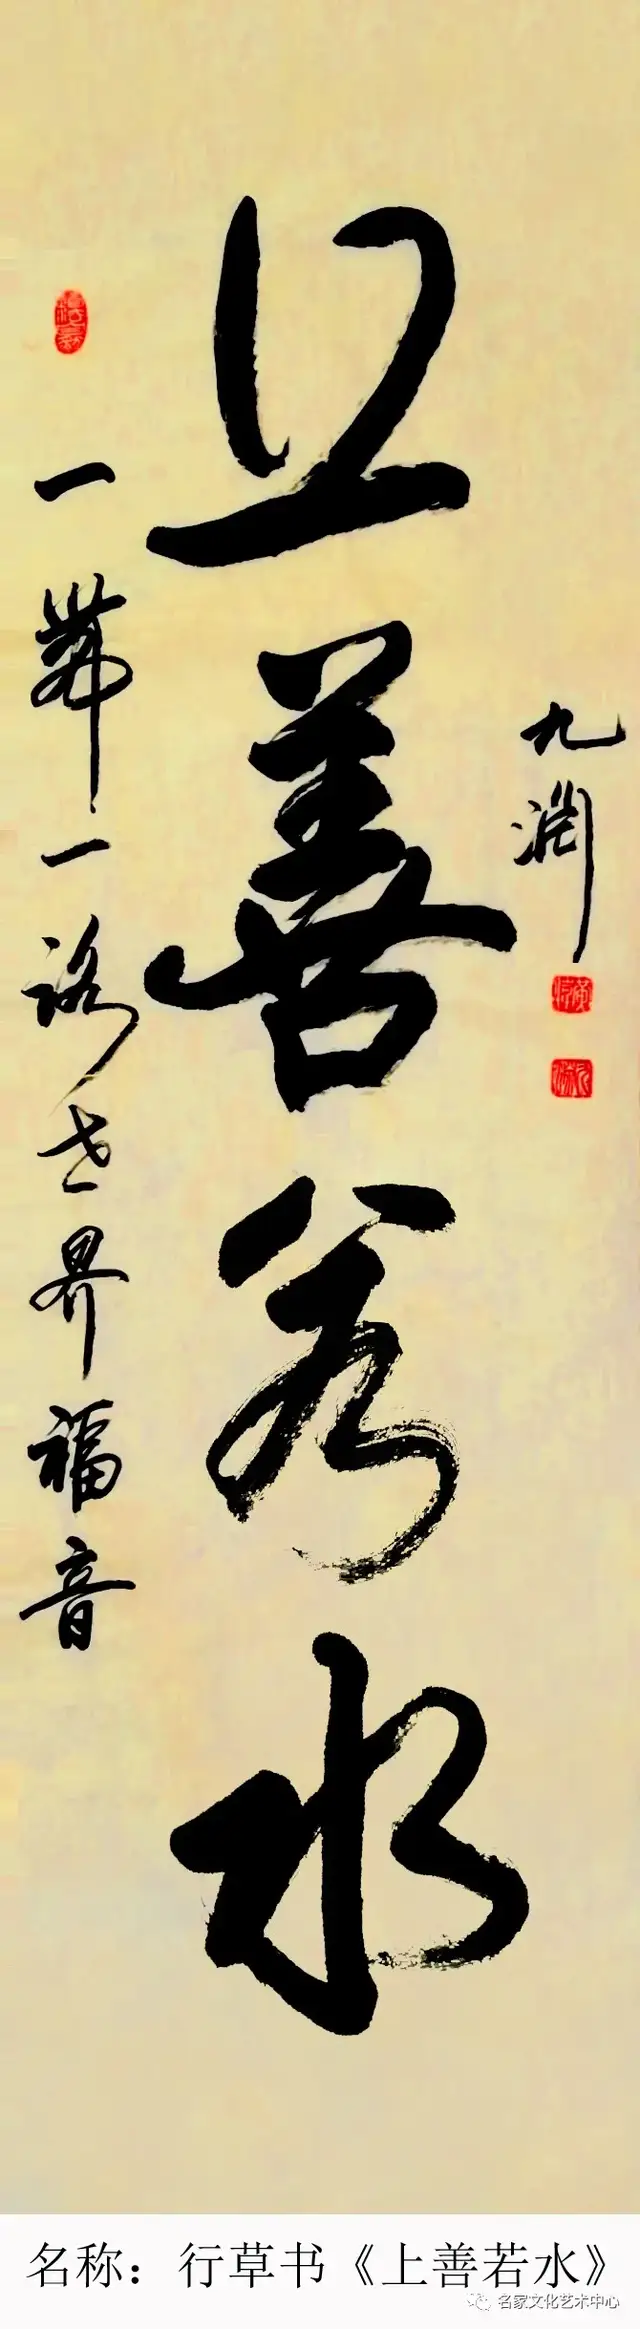 上善若水
一帶一路世界福音
九渊
名称：行草书《上善若水》
名家文化艺术中心